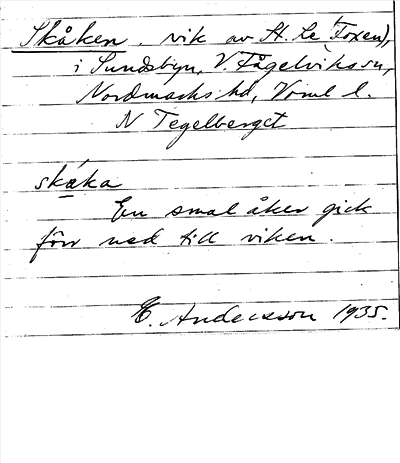 Skåken, vik av St. Le (Foxen),
i Sundsbyn, V. Fågelviks sn,
Nordmarks hd, Vrml l.
N Tegelberget
skåka
En smal åker gick
förr ned till viken.
E. Andersson 1935.